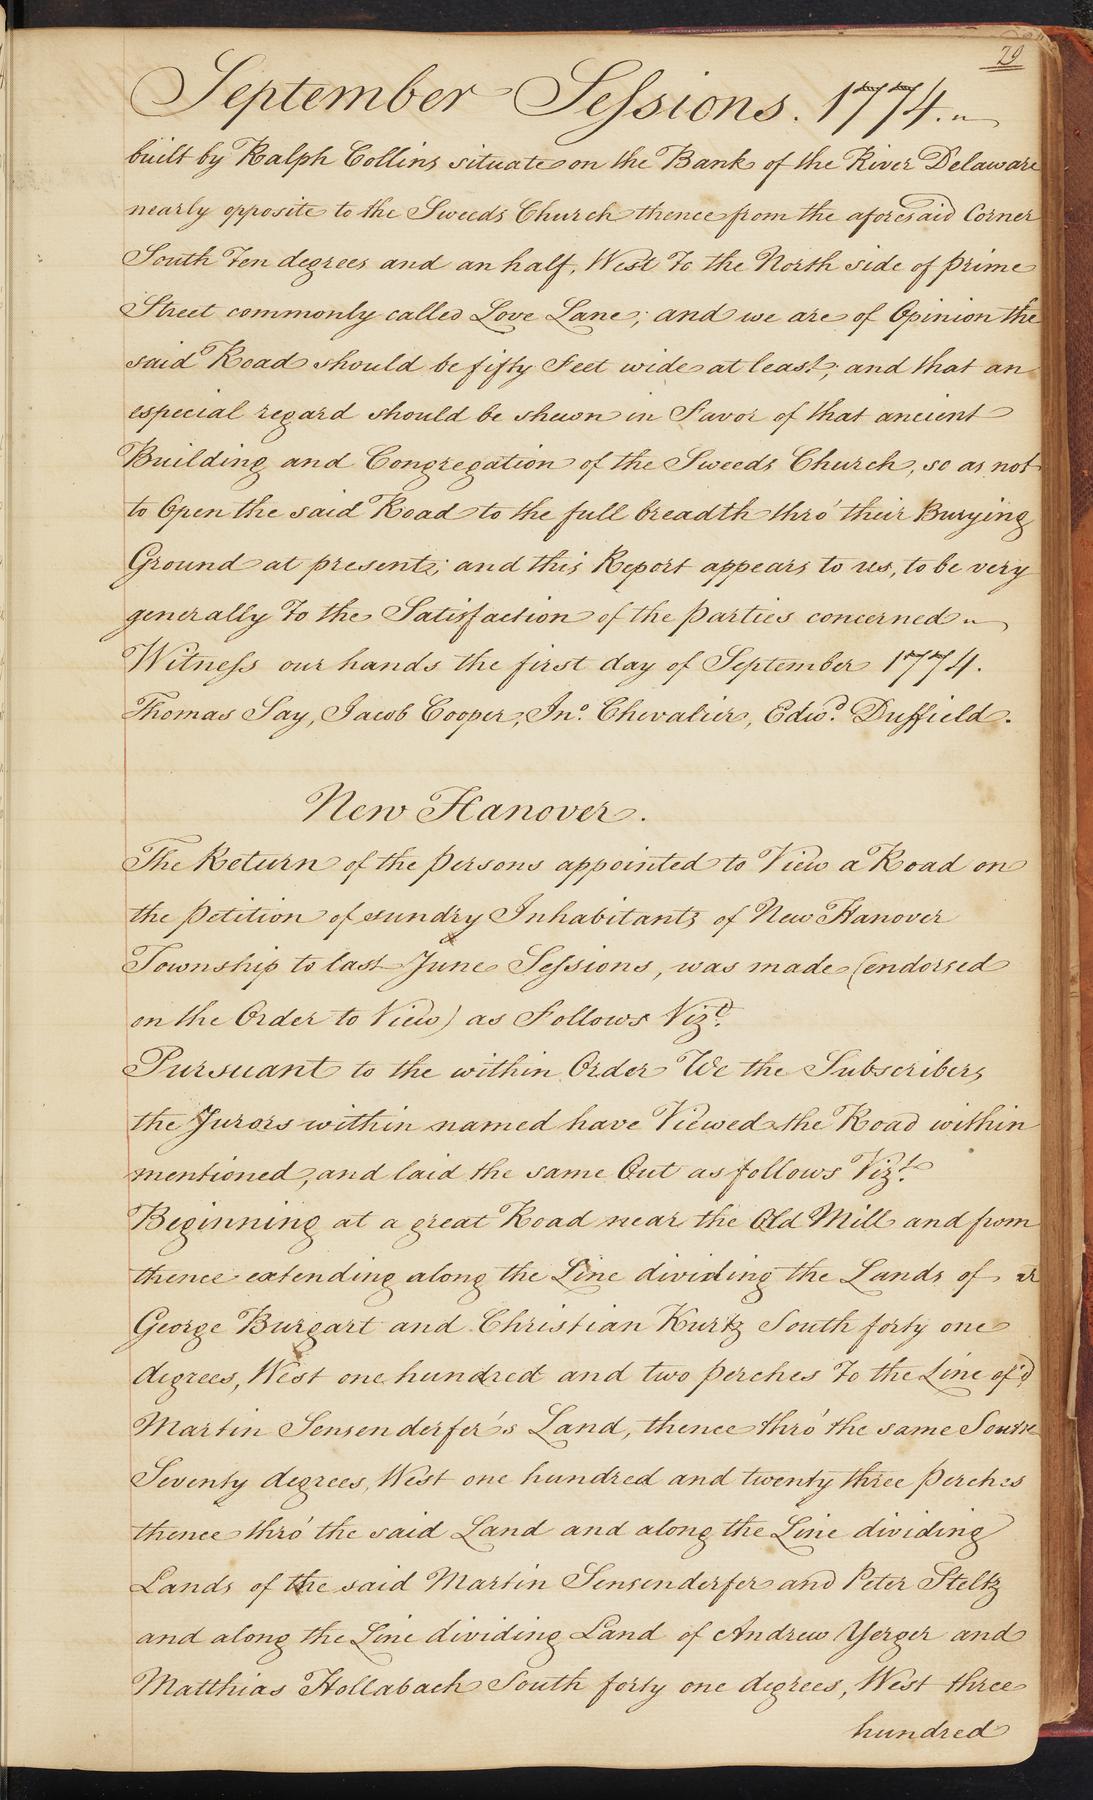 29
September Sessions. 1774.
built by Ralph Collins situate on the Bank of the River Delaware
nearly opposite to the Sweeds Church thence from the aforesaid Corner
South Ten degrees and an half, West To the North side of prime
Street commonly called Love Lane; and we are of Opinion the
said Road should be fifty Feet wide at least; and that an
especial regard should be shewn in Favor of that ancient
Building and Congregation of the Sweeds Church, so as not
to Open the said Road to the full breadth thro' their Burying
Ground at present; and this Report appears to us, to be very
generally To the Satisfaction of the parties concerned
Witness our hands the first day of September 1774.
Thomas Say, Jacob Cooper, Jno. Chevalier, Edwd. Duffield.
New Hanover.
The Return of the persons appointed to View a Road on
the petition of sundry Inhabitants of New Hanover
Township to last June Sessions, was made (endorsed
on the Order to View) as Follows Vizt.
Pursuant to the within Order We the Subscribers
the Jurors within named have Viewed the Road within
mentioned, and laid the same Out as follows Vizt.
Beginning at a great Road near the Old Mill and from
thence extending along the Line dividing the Lands of
George Burgart and Christian Kurtz South forty one
degrees, West one hundred and two perches To the Line of
Martin Sensenderfer's Land, thence thro' the same South
Seventy degrees, West one hundred and twenty three perches
thence thro' the said Land and along the Line dividing
Lands of the said Martin Sensenderfer and Peter Steltz
and along the Line dividing Land of Andrew Yerger and
Matthias Hollabach South forty one degrees, West three
hundred